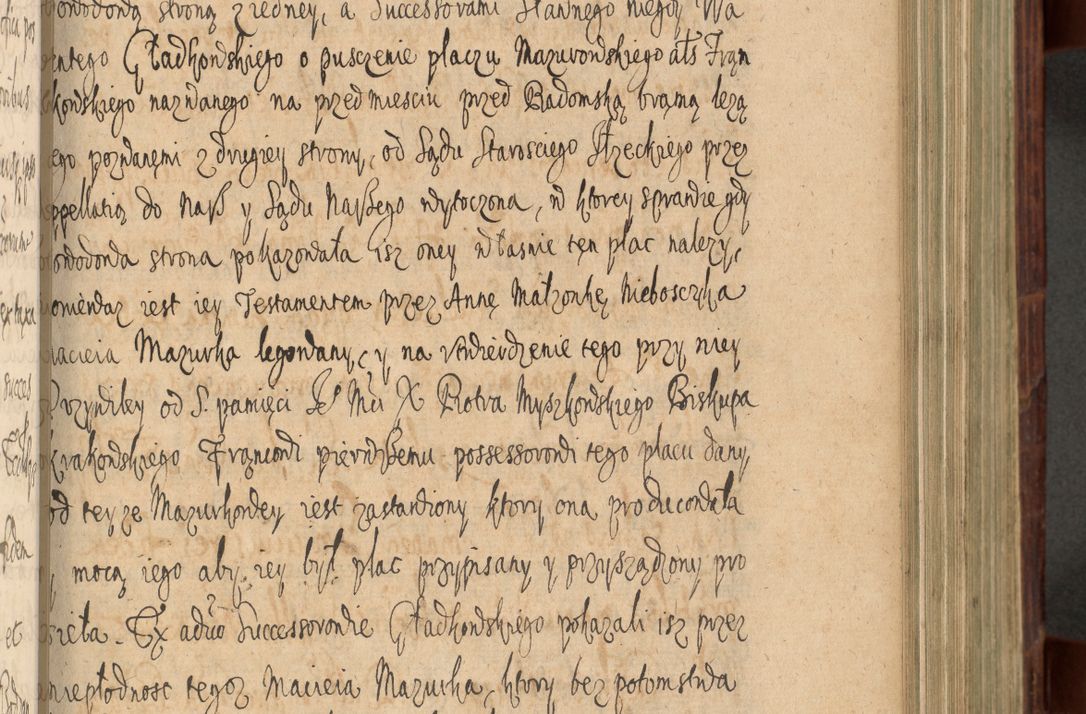 powodową stroną z iedney, a Successorami Sławnego niegdy Wa
entego Gładkowskiego o pusczenie placzu Mazurowskiego als Frąn
kowskiego nazwanego na przedmiesciu przed Radomską bramą lezą
ego pozwanęmi z drugiey strony, od Sądu Starosciego Steckiego przez
ppellatią do Nass y Sądu Nassego wytoczona, w ktorey sprawie gdy
powodowa strona pokazowała isz oney własnie tęn plac nalezy,
poniewaz iest iey Testamentem przez Annę Małzonkę Nieboszczka
Macieia Mazurka legowany, y na utwierdzenie tego przy niey
Przywiley od S. pamięci Je Mci X Piotra Myszkowskiego Biskupa
Krakowskiego Frąncowi pierwszemu possessorowi tego placu dany,
od teyze Mazurkowey iest zastawiony ktory ona producowała
, mocą iego aby iey był plac przypisany y przysządzony pro
sieła. Ex aduo Successorowie Gładkowskiego pokazali isz przez
niepłodnosc tegoz Macieia Mazurka, ktory bez potomstwa